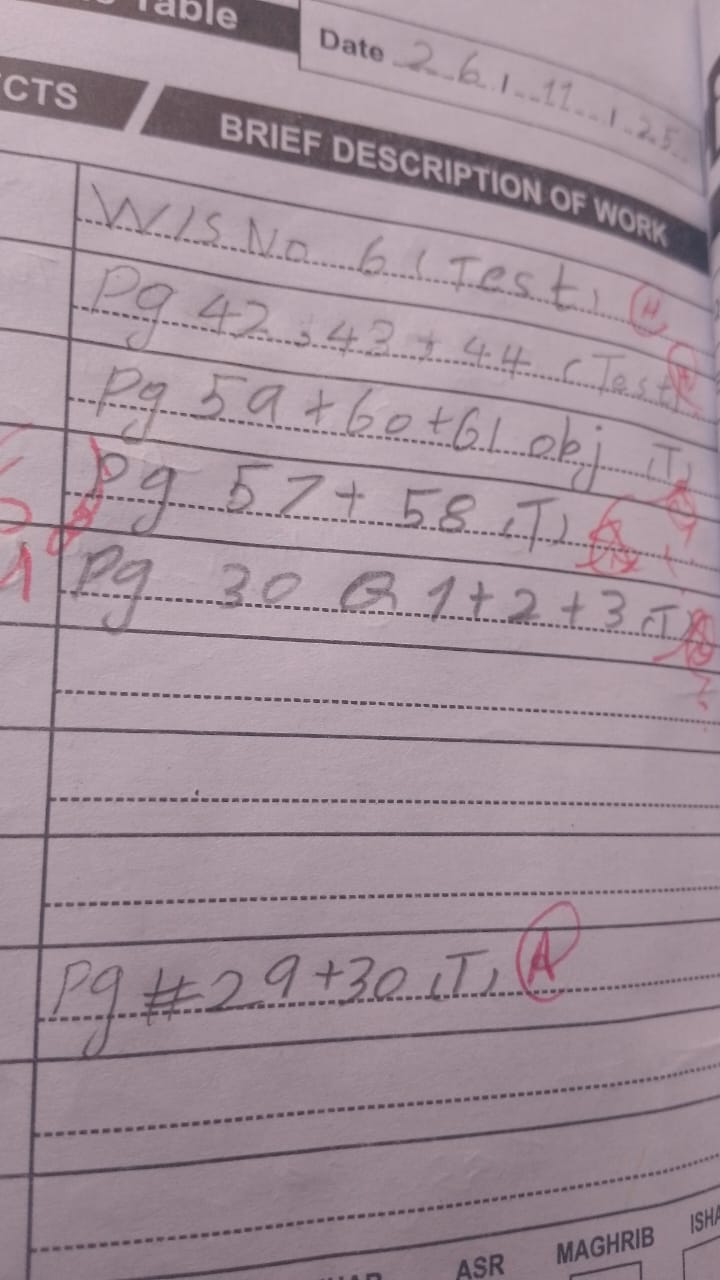 Table
Date 26/11/25
CTS
BRIEF DESCRIPTION OF WORK
W/S No 6 (Test)
Pg 42, 43 + 44 (Test)
Pg 59 + 60 + 61 obj (T)
Pg 57 + 58 (T)
Pg 30 Q 1 + 2 + 3 (T)
Pg # 29 + 30 (T) A
ASR MAGHRIB ISHA